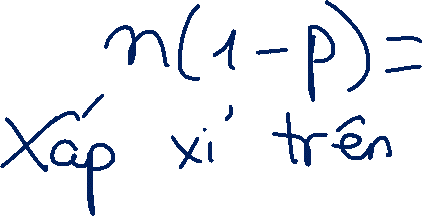 n(1-p)=
Xấp xỉ trên